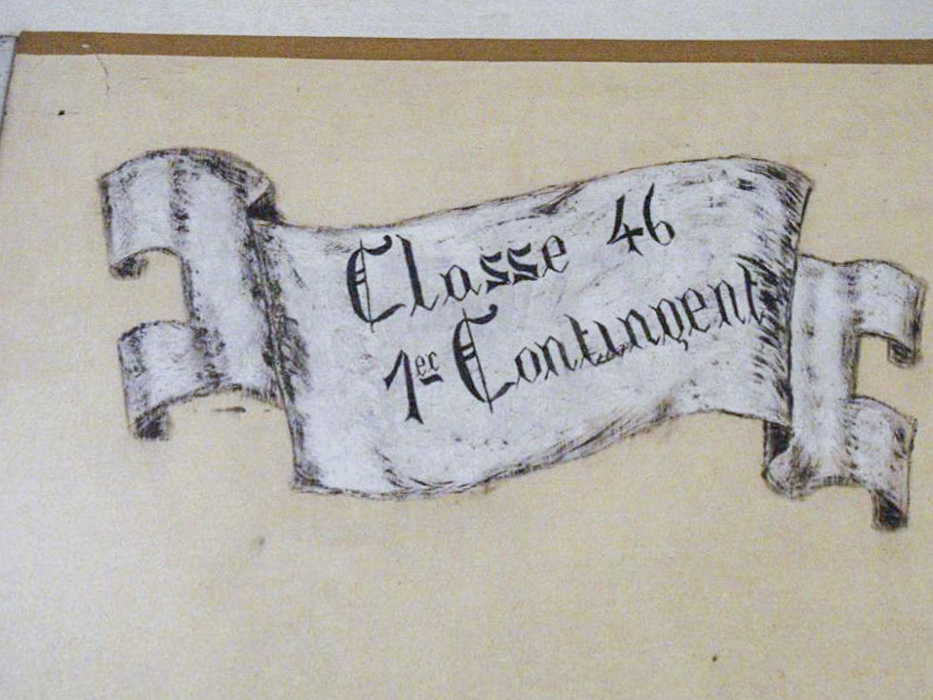 Classe 46
1er Contingent